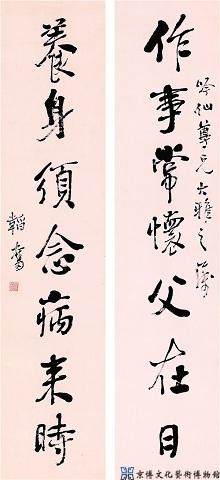 作事常懷父在日
吟仙尊兄大雅之屬
養身須念病來時
韜奮
京博文化藝術博物館